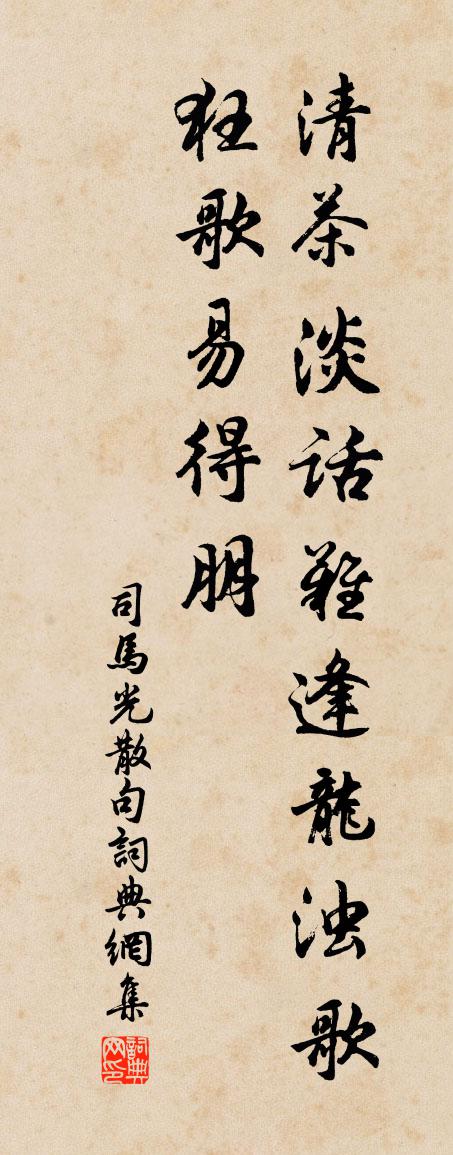 清茶淡話難逢龍浊歌
狂歌易得朋
司馬光散句詞典網集
詞典网印